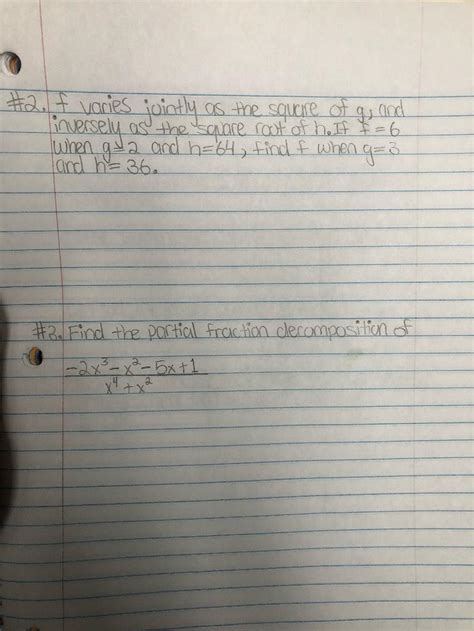 #2. f varies jointly as the square of g, and
inversely as the square root of h. If f = 6
when g=2 and h=64, find f when g=3
and h=36.
#3. Find the partial fraction decomposition of
-2x³-x²-5x+1
x⁴+x²